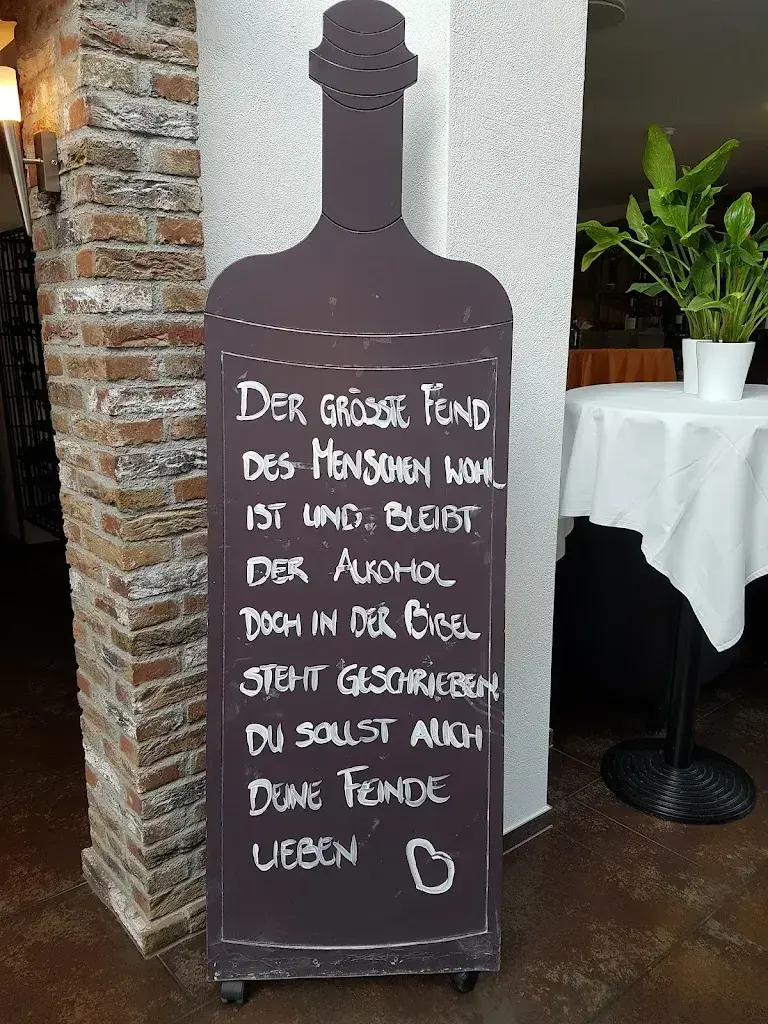 DER GRÖSSTE FEIND
DES MENSCHEN WOHL
IST UND BLEIBT
DER ALKOHOL
DOCH IN DER BIBEL
STEHT GESCHRIEBEN
DU SOLLST AUCH
DEINE FEINDE
LIEBEN